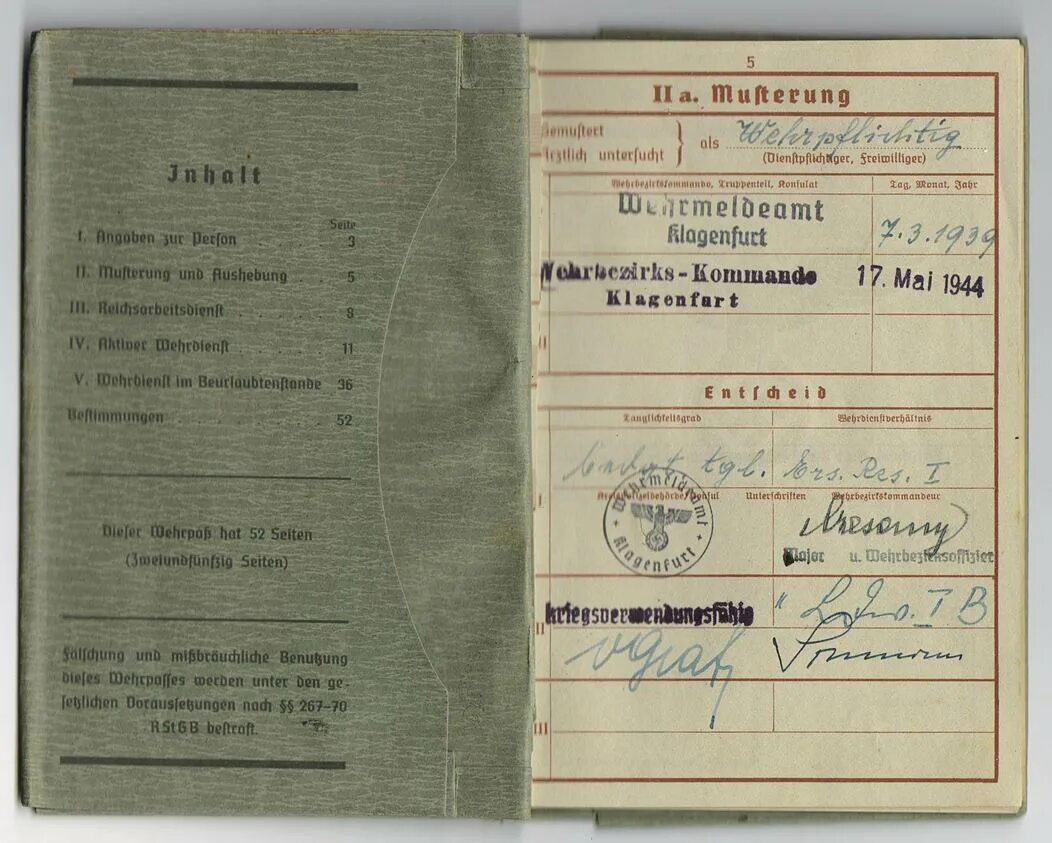 Inhalt
Seite
I. Angaben zur Person . . . . 3
II. Musterung und Aushebung . . . . 5
III. Reichsarbeitsdienst . . . . 8
IV. Aktiver Wehrdienst . . . . 11
V. Wehrdienst im Beurlaubtenstande 36
Bestimmungen . . . . 52
Dieser Wehrpaß hat 52 Seiten
(Zweiundfünfzig Seiten)
Fälschung und mißbräuchliche Benutzung
dieses Wehrpasses werden unter den ge-
setzlichen Voraussetzungen nach §§ 267-70
RStGB bestraft.
5
IIa. Musterung
Gemustert
Ärztlich untersucht
als Wehrpflichtig
(Dienstpflichtiger, Freiwilliger)
Wehrbezirkskommando, Truppenteil, Konsulat
Tag, Monat, Jahr
Wehrmeldeamt
Klagenfurt
7.3.1939
Wehrbezirks-Kommando
Klagenfurt
17. Mai 1944
II
Entscheid
Tauglichkeitsgrad
Wehrdienstverhältnis
tgl. Ers. Res. I
I
Unterschriften
Wehrbezirkskommandeur
Wehrmeldeamt
Klagenfurt
Major u. Wehrbezirksoffizier
II
kriegsverwendungsfähig
" I B
III